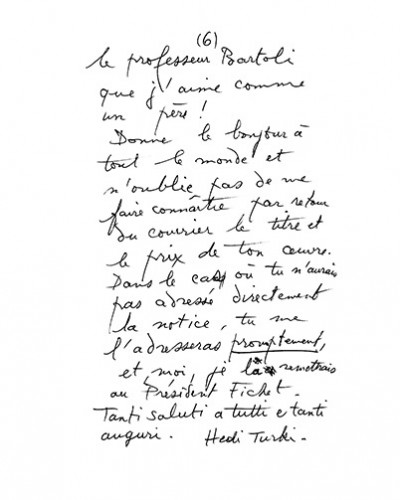 (6)
le professeur Bartoli
que j'aime comme
un père !
Donne le bonjour à
tout le monde et
n'oublie pas de me
faire connaître par retour
du courrier le titre et
le prix de ton œuvre.
Dans le cas où tu n'aurais
pas adressé directement
la notice, tu me
l'adresseras promptement,
et moi, je la remettrais
au Président Fichet.
Tanti saluti a tutti e tanti
auguri. Hedi Turki.